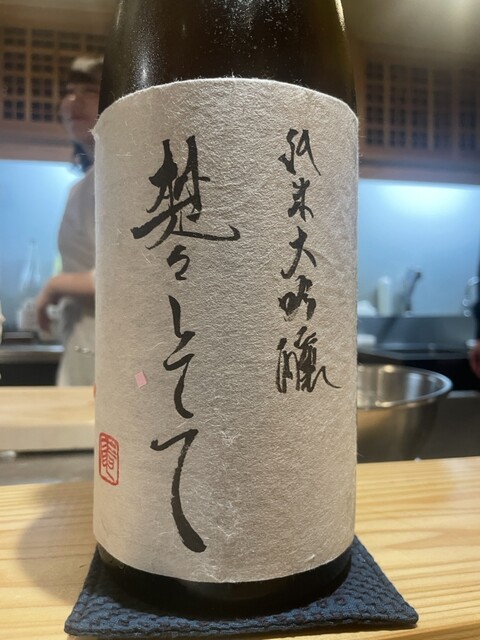 純米大吟醸
楚々として